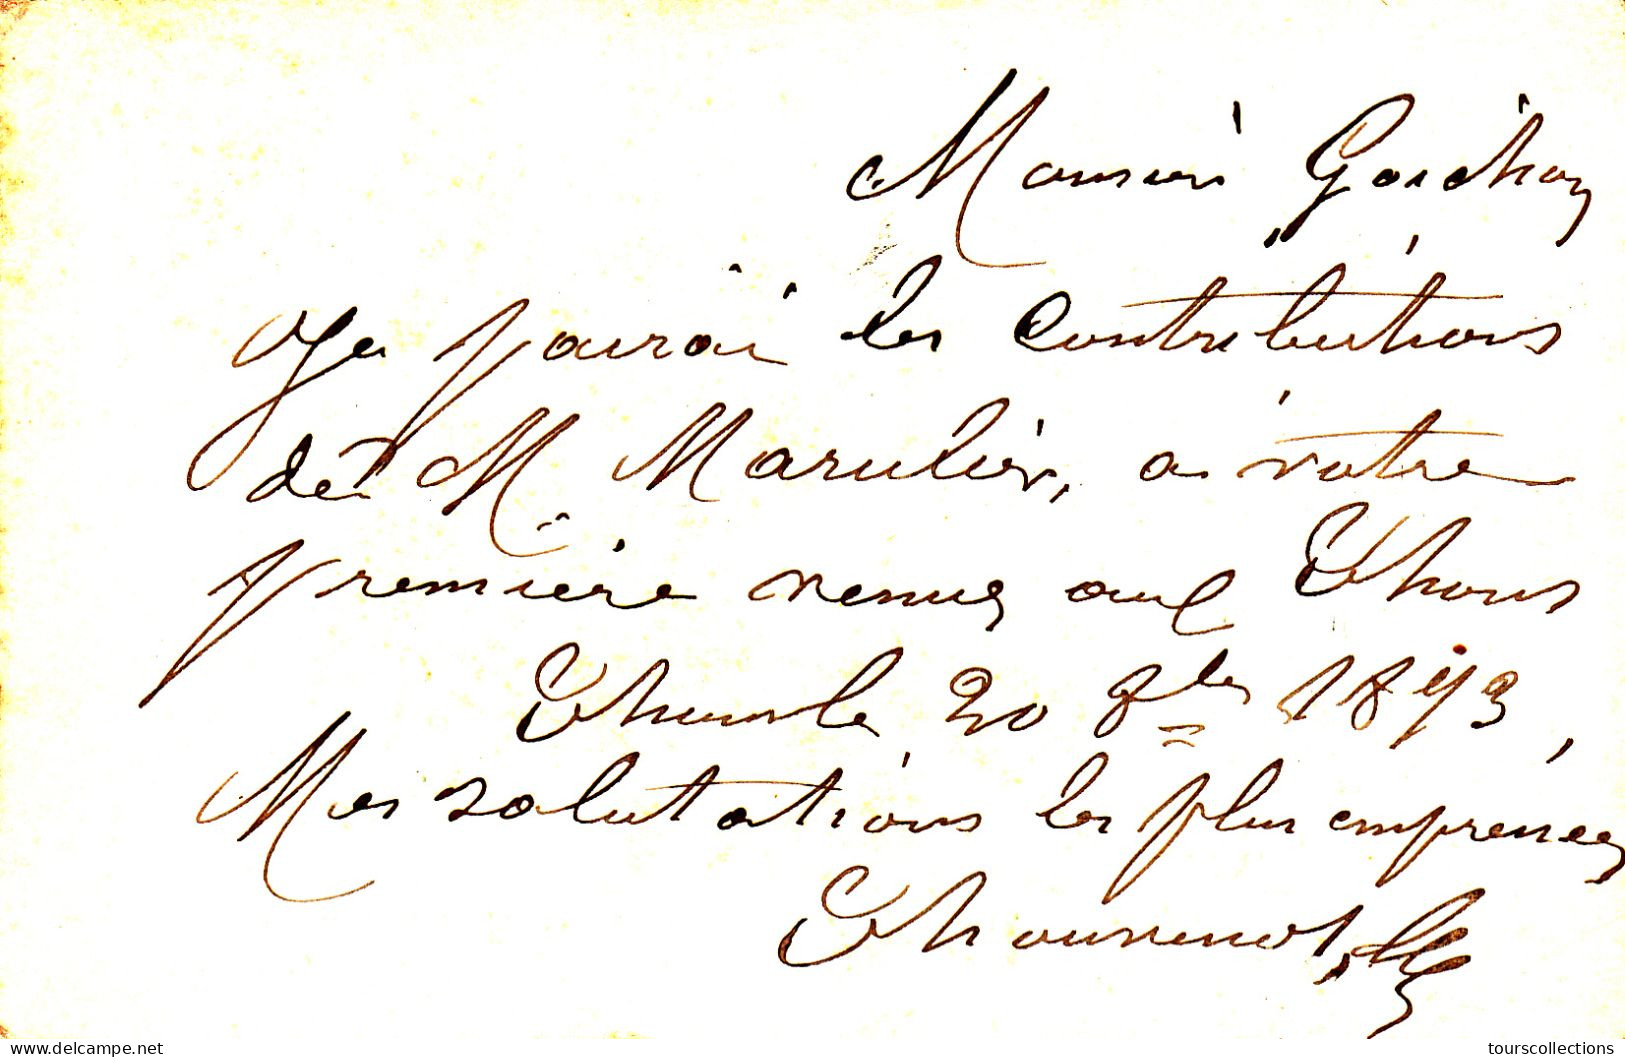 Monsieur Goichon
Je pairai les Contributions
de M. Marulier, a votre
première venue aux Thons
20 8bre 1893,
Mes salutations les plus empressées
Thouvenot
www.delcampe.net
tourscollections